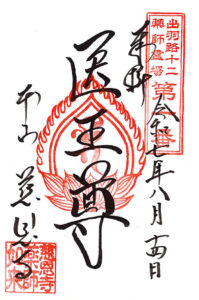 出羽路十二
薬師霊場
第一番
奉拝
令和七年八月十四日
医王尊
本山
慈恩寺